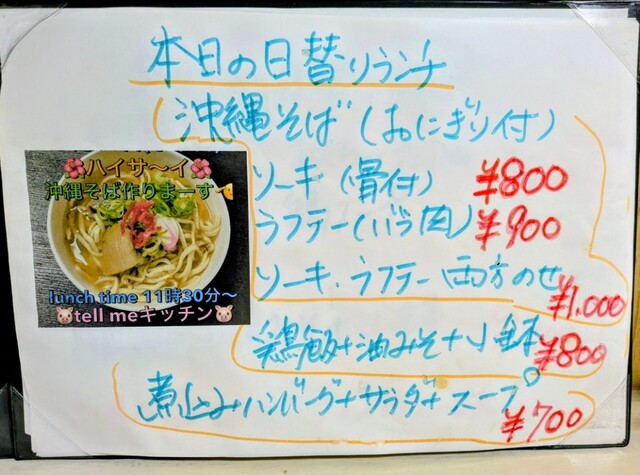 本日の日替りランチ
沖縄そば(おにぎり付)
ソーキ(骨付) ¥800
ラフテー(バラ肉) ¥900
ソーキ・ラフテー両方のせ ¥1.000
鶏飯+油みそ+小鉢 ¥800
煮込みハンバーグ+サラダ+スープ ¥700
🌺ハイサ〜イ🌺
沖縄そば作りまーす
lunch time 11時30分〜
🐷tell meキッチン🐷